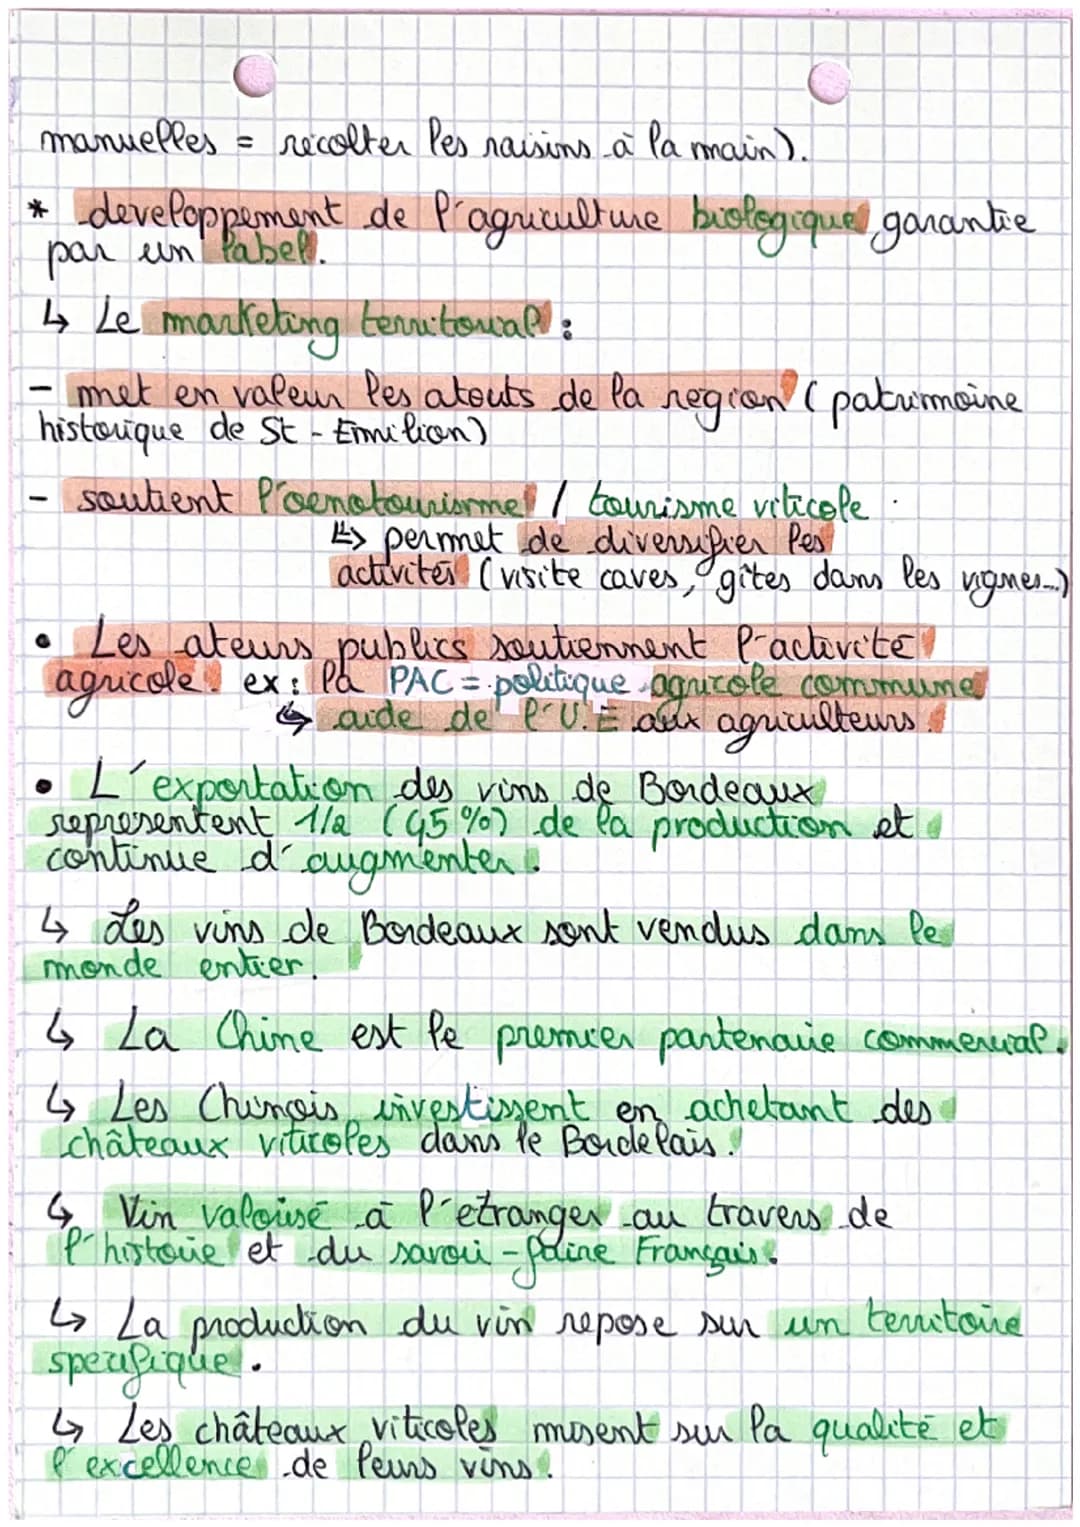 manuelles = récolter les raisins à la main).
* developpement de l'agriculture biologique garantie
par un label.
↳ Le marketing territorial :
- met en valeur les atouts de la région (patrimoine
historique de St-Emilion)
- soutient l'oenotourisme / tourisme viticole
↳ permet de diversifier les
activités (visite caves, gîtes dans les vignes...)
• Les ateurs publics soutiennent l'activité
agricole. ex : la PAC = politique agricole commune
↳ aide de l'U.E aux agriculteurs.
• L'exportation des vins de Bordeaux
représentent 1/2 (45%) de la production et
continue d'augmenter.
↳ Les vins de Bordeaux sont vendus dans le
monde entier.
↳ La Chine est le premier partenaire commercial.
↳ Les Chinois investissent en achetant des
châteaux viticoles dans le Bordelais.
↳ Vin valorisé à l'etranger au travers de
l'histoire et du savoir-faire Français.
↳ La production du vin repose sur un territoire
specifique.
↳ Les châteaux viticoles misent sur la qualité et
l'excellence de leurs vins.